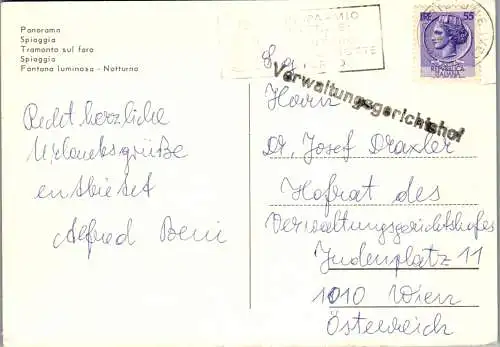 Panorama
Spiaggia
Tramonto sul faro
Spiaggia
Fontana luminosa - Notturno
Recht herzliche
Urlaubsgrüße
entbietet
Alfred
LIRE 55
REPUBBLICA
ITALIANA
Verwaltungsgerichtshof
Herrn
Dr. Josef Draxler
Hofrat des
Verwaltungsgerichtshofes
Judenplatz 11
1010 Wien
Österreich